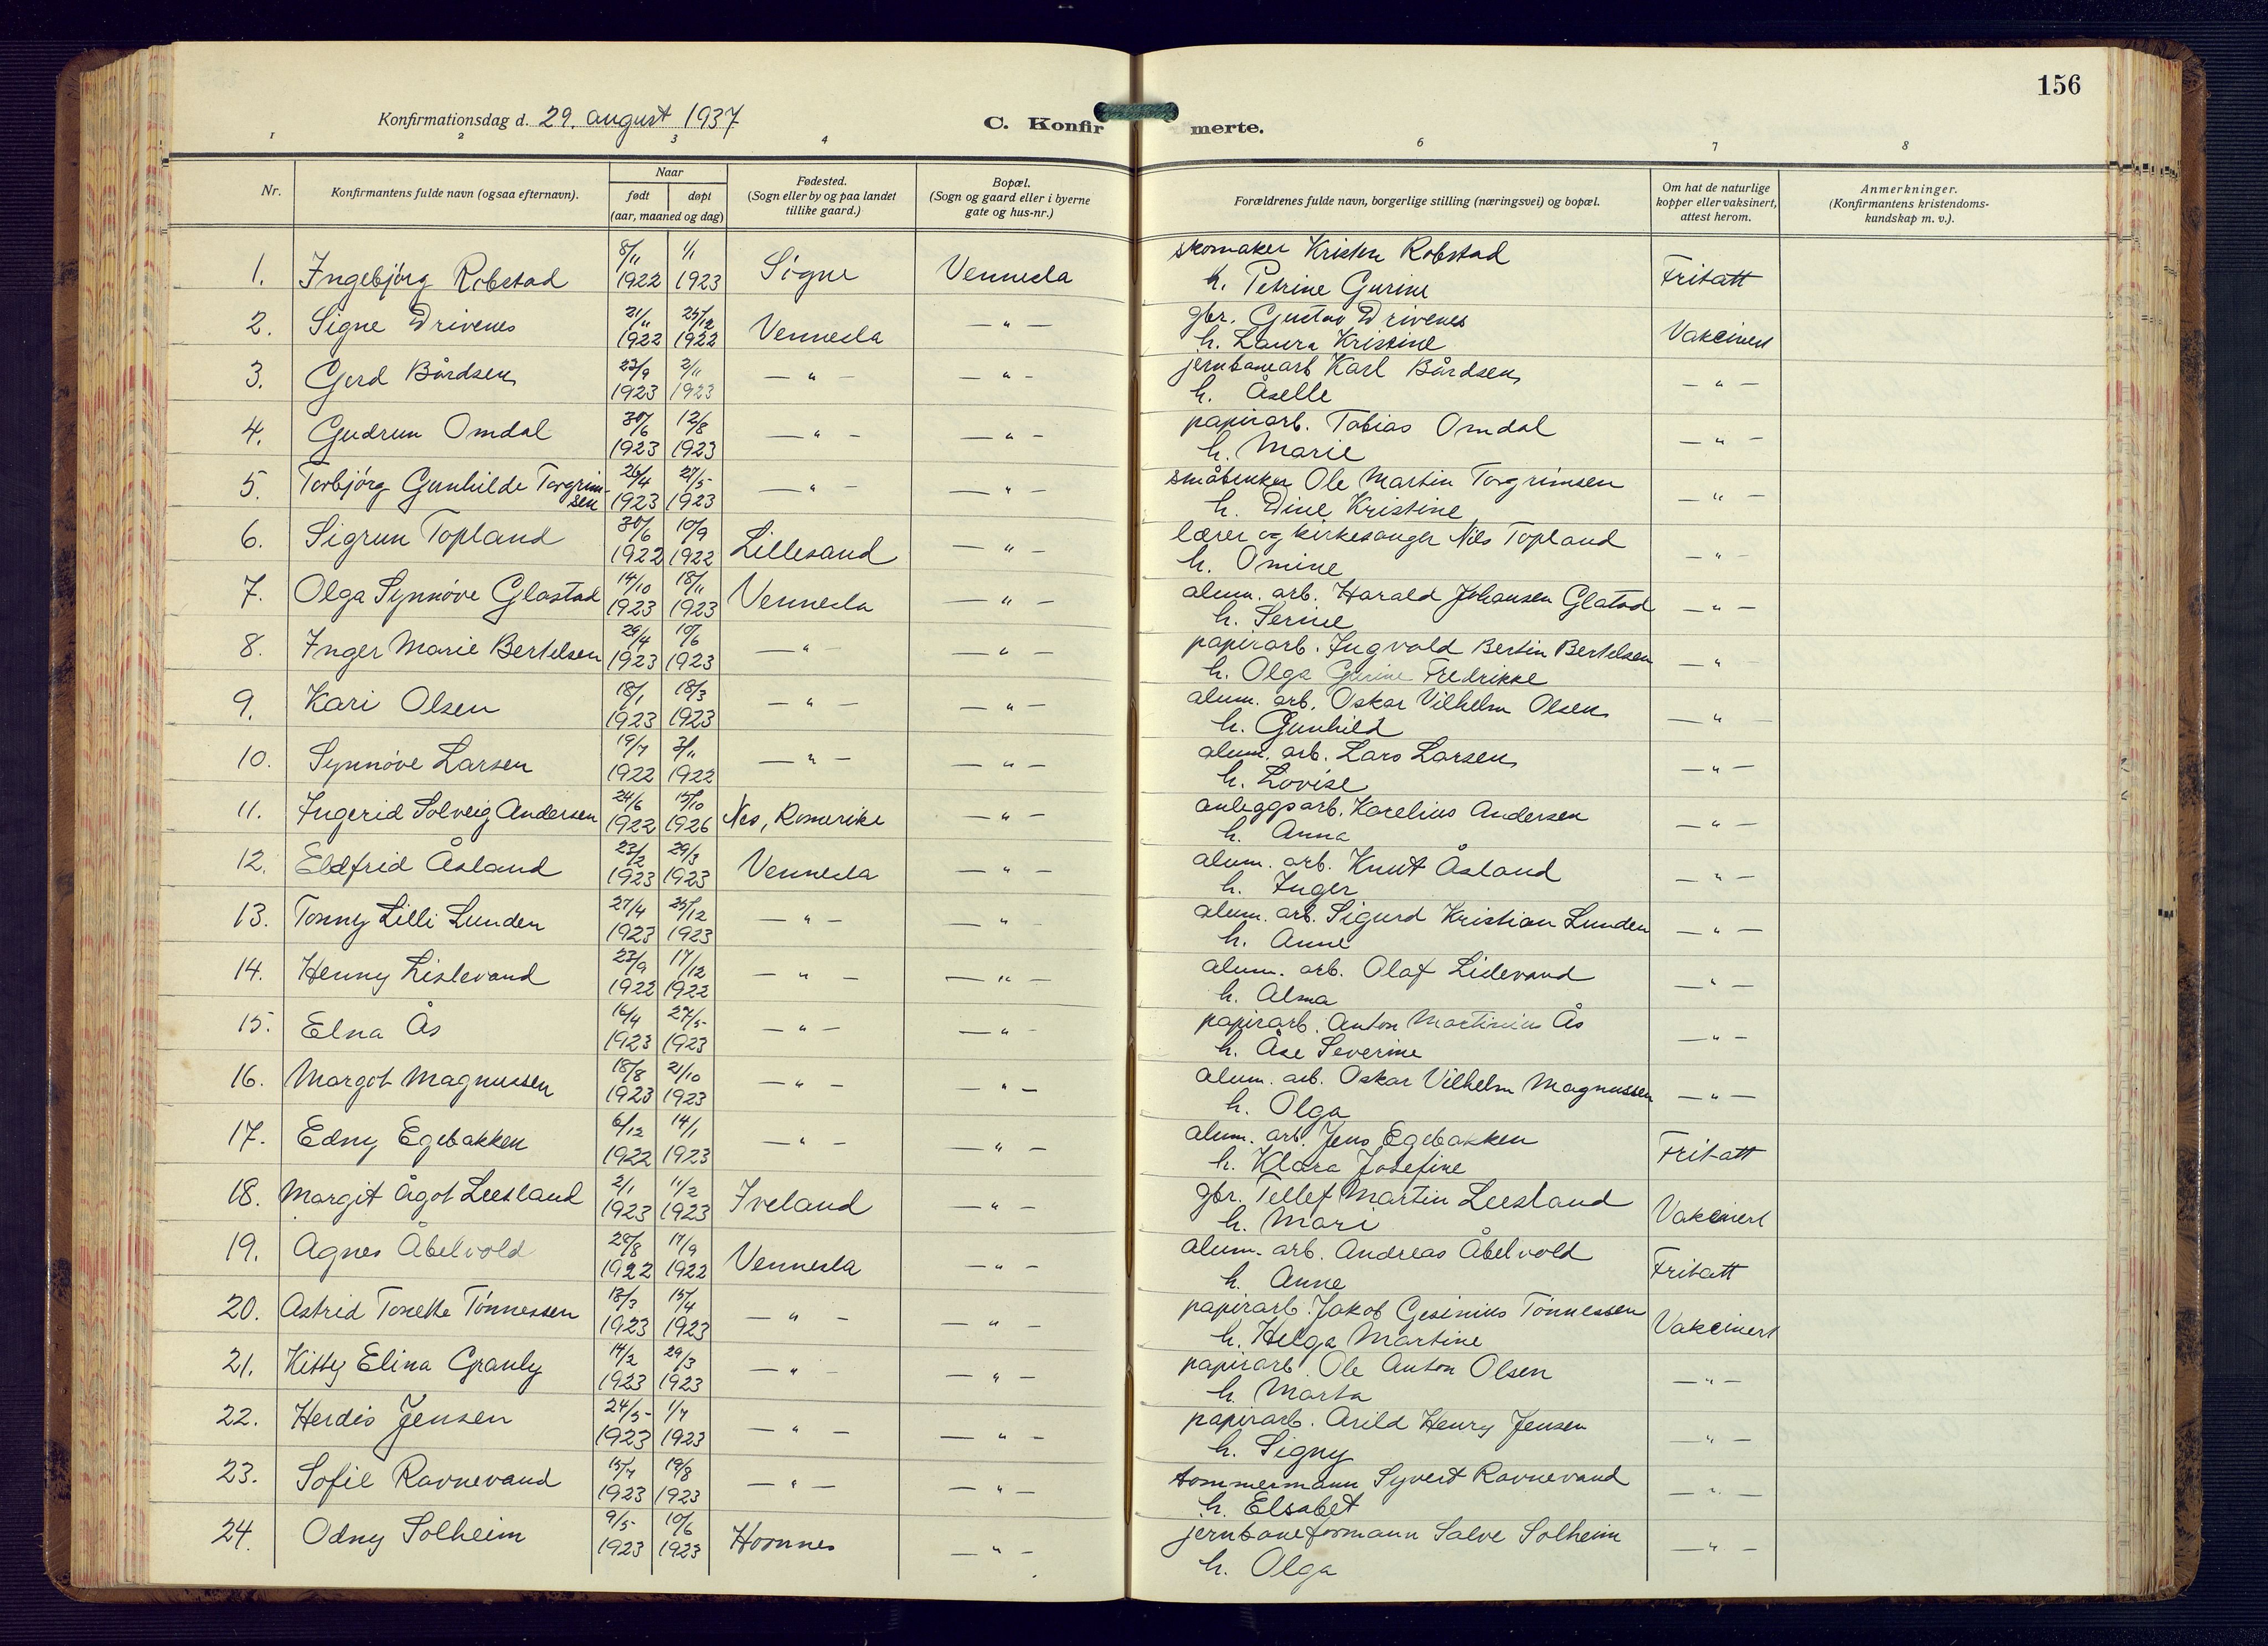 156
Konfirmationsdag d. 29. august 1937
C. Konfirmerte.
1 2 3 4 6 7 8
Nr. Konfirmantens fulde navn (ogsaa efternavn). Naar født døpt (aar, maaned og dag) Fødested. (Sogn eller by og paa landet tillike gaard.) Bopæl. (Sogn og gaard eller i byerne gate og hus-nr.) Forældrenes fulde navn, borgerlige stilling (næringsvei) og bopæl. Om hat de naturlige kopper eller vaksinert, attest herom. Anmerkninger. (Konfirmantens kristendomskundskap m. v.).
1. Ingebjørg Robstad 8/11 1922 1/1 1923 Søgne Vennesla skomaker Kristen Robstad h. Petrine Gurine Fritatt
2. Signe Drivenes 21/11 1922 25/12 1922 Vennesla — " — gbr. Gustav Drivenes h. Laura Kristine Vakcinert
3. Gerd Bårdsen 23/9 1923 2/11 1923 — " — — " — jernbanearb Karl Bårdsen h. Åselle — " —
4. Gudrun Omdal 30/6 1923 12/8 1923 — " — — " — papirarb. Tobias Omdal h. Marie — " —
5. Torbjørg Gunhilde Torgrimsen 26/4 1923 27/5 1923 — " — — " — småbruker Ole Martin Torgrimsen h. Dine Kristine — " —
6. Sigrun Topland 30/6 1922 10/9 1922 Lillesand — " — lærer og kirkesanger Nils Topland h. Omine — " —
7. Olga Synnøve Glastad 14/10 1923 18/11 1923 Vennesla — " — alum. arb. Harald Johansen Glatad h. Serine — " —
8. Inger Marie Bertelsen 29/4 1923 10/6 1923 — " — — " — papirarb. Ingvald Bertin Bertelsen h. Olga Gurine Fredrikke — " —
9. Kari Olsen 18/1 1923 18/3 1923 — " — — " — alum. arb. Oskar Vilhelm Olsen h. Gunhild — " —
10. Synnøve Larsen 19/7 1922 3/11 1922 — " — — " — alum. arb. Lars Larsen h. Lovise — " —
11. Ingerid Solveig Andersen 24/6 1922 15/10 1926 Nes, Romerike — " — anleggsarb. Karelius Andersen h. Anna — " —
12. Eldfrid Åsland 23/2 1923 29/3 1923 Vennesla — " — alum. arb. Knut Åsland h. Inger — " —
13. Tonny Lilli Lunden 27/4 1923 25/12 1923 — " — — " alum. arb. Sigurd Kristian Lunden h. Anne — " —
14. Henny Lislevand 23/9 1922 17/12 1922 — " — — " — alum. arb. Olaf Lislevand h. Alma — " —
15. Elna Ås 16/4 1923 27/5 1923 — " — — " — papirarb. Anton Martinius Ås h. Åse Severine — " —
16. Margot Magnussen 18/8 1923 21/10 1923 — " — — " — alum. arb. Oskar Vilhelm Magnussen h. Olga — " —
17. Edny Egebakken 6/12 1922 14/1 1923 — " — — " — alum. arb. Jens Egebakken h. Klara Josefine Fritatt
18. Margit Ågot Leesland 2/1 1923 11/2 1923 Iveland — " — gbr. Tellef Martin Leesland h. Mari Vakcinert
19. Agnes Åbelvold 20/8 1922 17/9 1922 Vennesla — " — alum. arb. Andreas Åbelvold h. Anne Fritatt
20. Astrid Tonette Tønnessen 13/3 1923 15/4 1923 — " — — " — papirarb. Jakob Gesinius Tønnessen h. Helga Martine Vakcinert
21. Kitty Elina Granly 14/2 1923 29/3 1923 — " — — " — papirarb. Ole Anton Olsen h. Marta — " —
22. Herdis Jensen 24/5 1923 1/7 1923 — " — — " — papirarb. Arild Henry Jensen h. Signy — " —
23. Sofie Ravnevand 15/7 1923 19/8 1923 — " — — " — tømmermann Syvert Ravnevand h. Elsabet — " —
24. Odny Solheim 9/5 1923 10/6 1923 Hornnes — " — jernbaneformann Salve Solheim h. Olga — " —